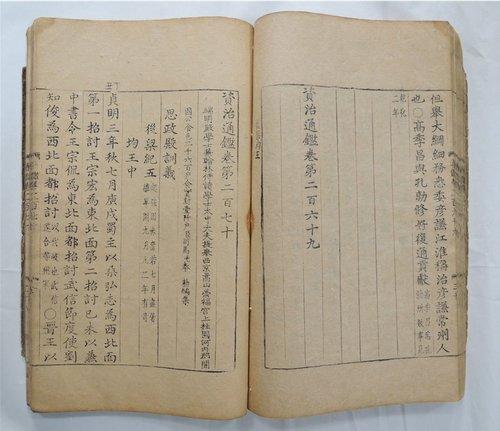 但舉大綱細務悉委彥謙江淮稱治彥謙常州人
也〇高季昌與孔勍修好復通貢獻
乾化
二年
資治通鑑卷第二百六十九
資治通鑑卷第二百七十
端明殿學士兼翰林侍讀學士太中大夫提舉西京嵩山崇福宮上柱國河內郡開
國公食邑二千六百戶食實封壹阡戶臣司馬光奉 勅編集
思政殿訓義
後梁紀五 起強圉赤奮若七月盡屠
維單閼九月凡二年有奇
均王中
丁丑
貞明三年秋七月庚戌蜀主以桑弘志為西北面
第一招討王宗宏為東北面第二招討己未以兼
中書令王宗侃為東北面都招討武信節度使劉
知俊為西北面都招討 〇晉王以